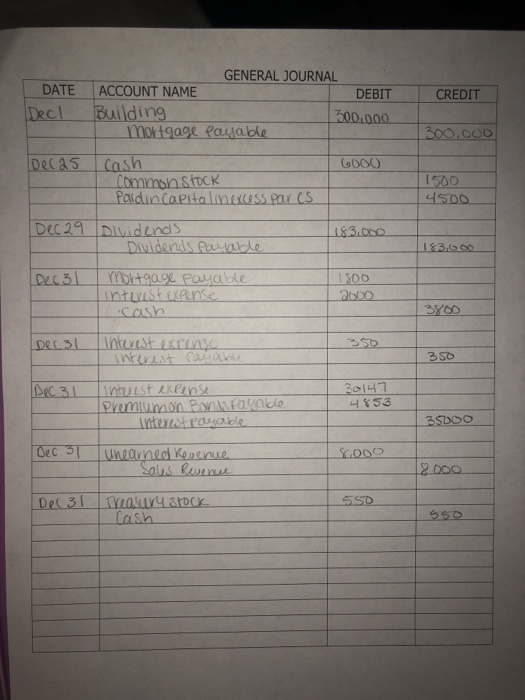 GENERAL JOURNAL
DATE ACCOUNT NAME DEBIT CREDIT
Dec 1 Building 300,000
Mortgage Payable 300,000
Dec 25 Cash 6000
Common Stock 1500
Paid in Capital in excess par CS 4500
Dec 29 Dividends 183,000
Dividends Payable 183,000
Dec 31 Mortgage Payable 1800
interest expense 2000
Cash 3800
Dec 31 Interest expense 350
interest payable 350
Dec 31 Interest expense 30147
Premium on Bonds Payable 4853
Interest payable 35000
Dec 31 Unearned Revenue 8,000
Sales Revenue 8000
Dec 31 Treasury stock 550
Cash 550